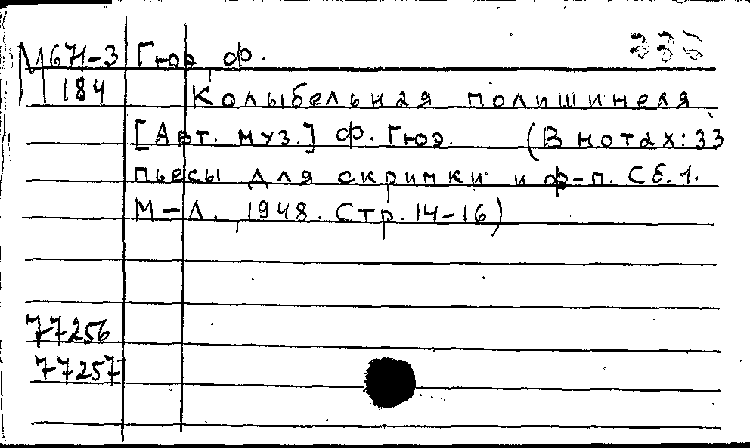 М6Н-3 Гюэ Ф. 335
184 Колыбельная полишинеля
[Авт. муз.] Ф. Гюэ. (В нотах: 33
пьесы для скрипки и ф-п. Сб. 1.
М-Л., 1948. Стр. 14-16)
77256
77257